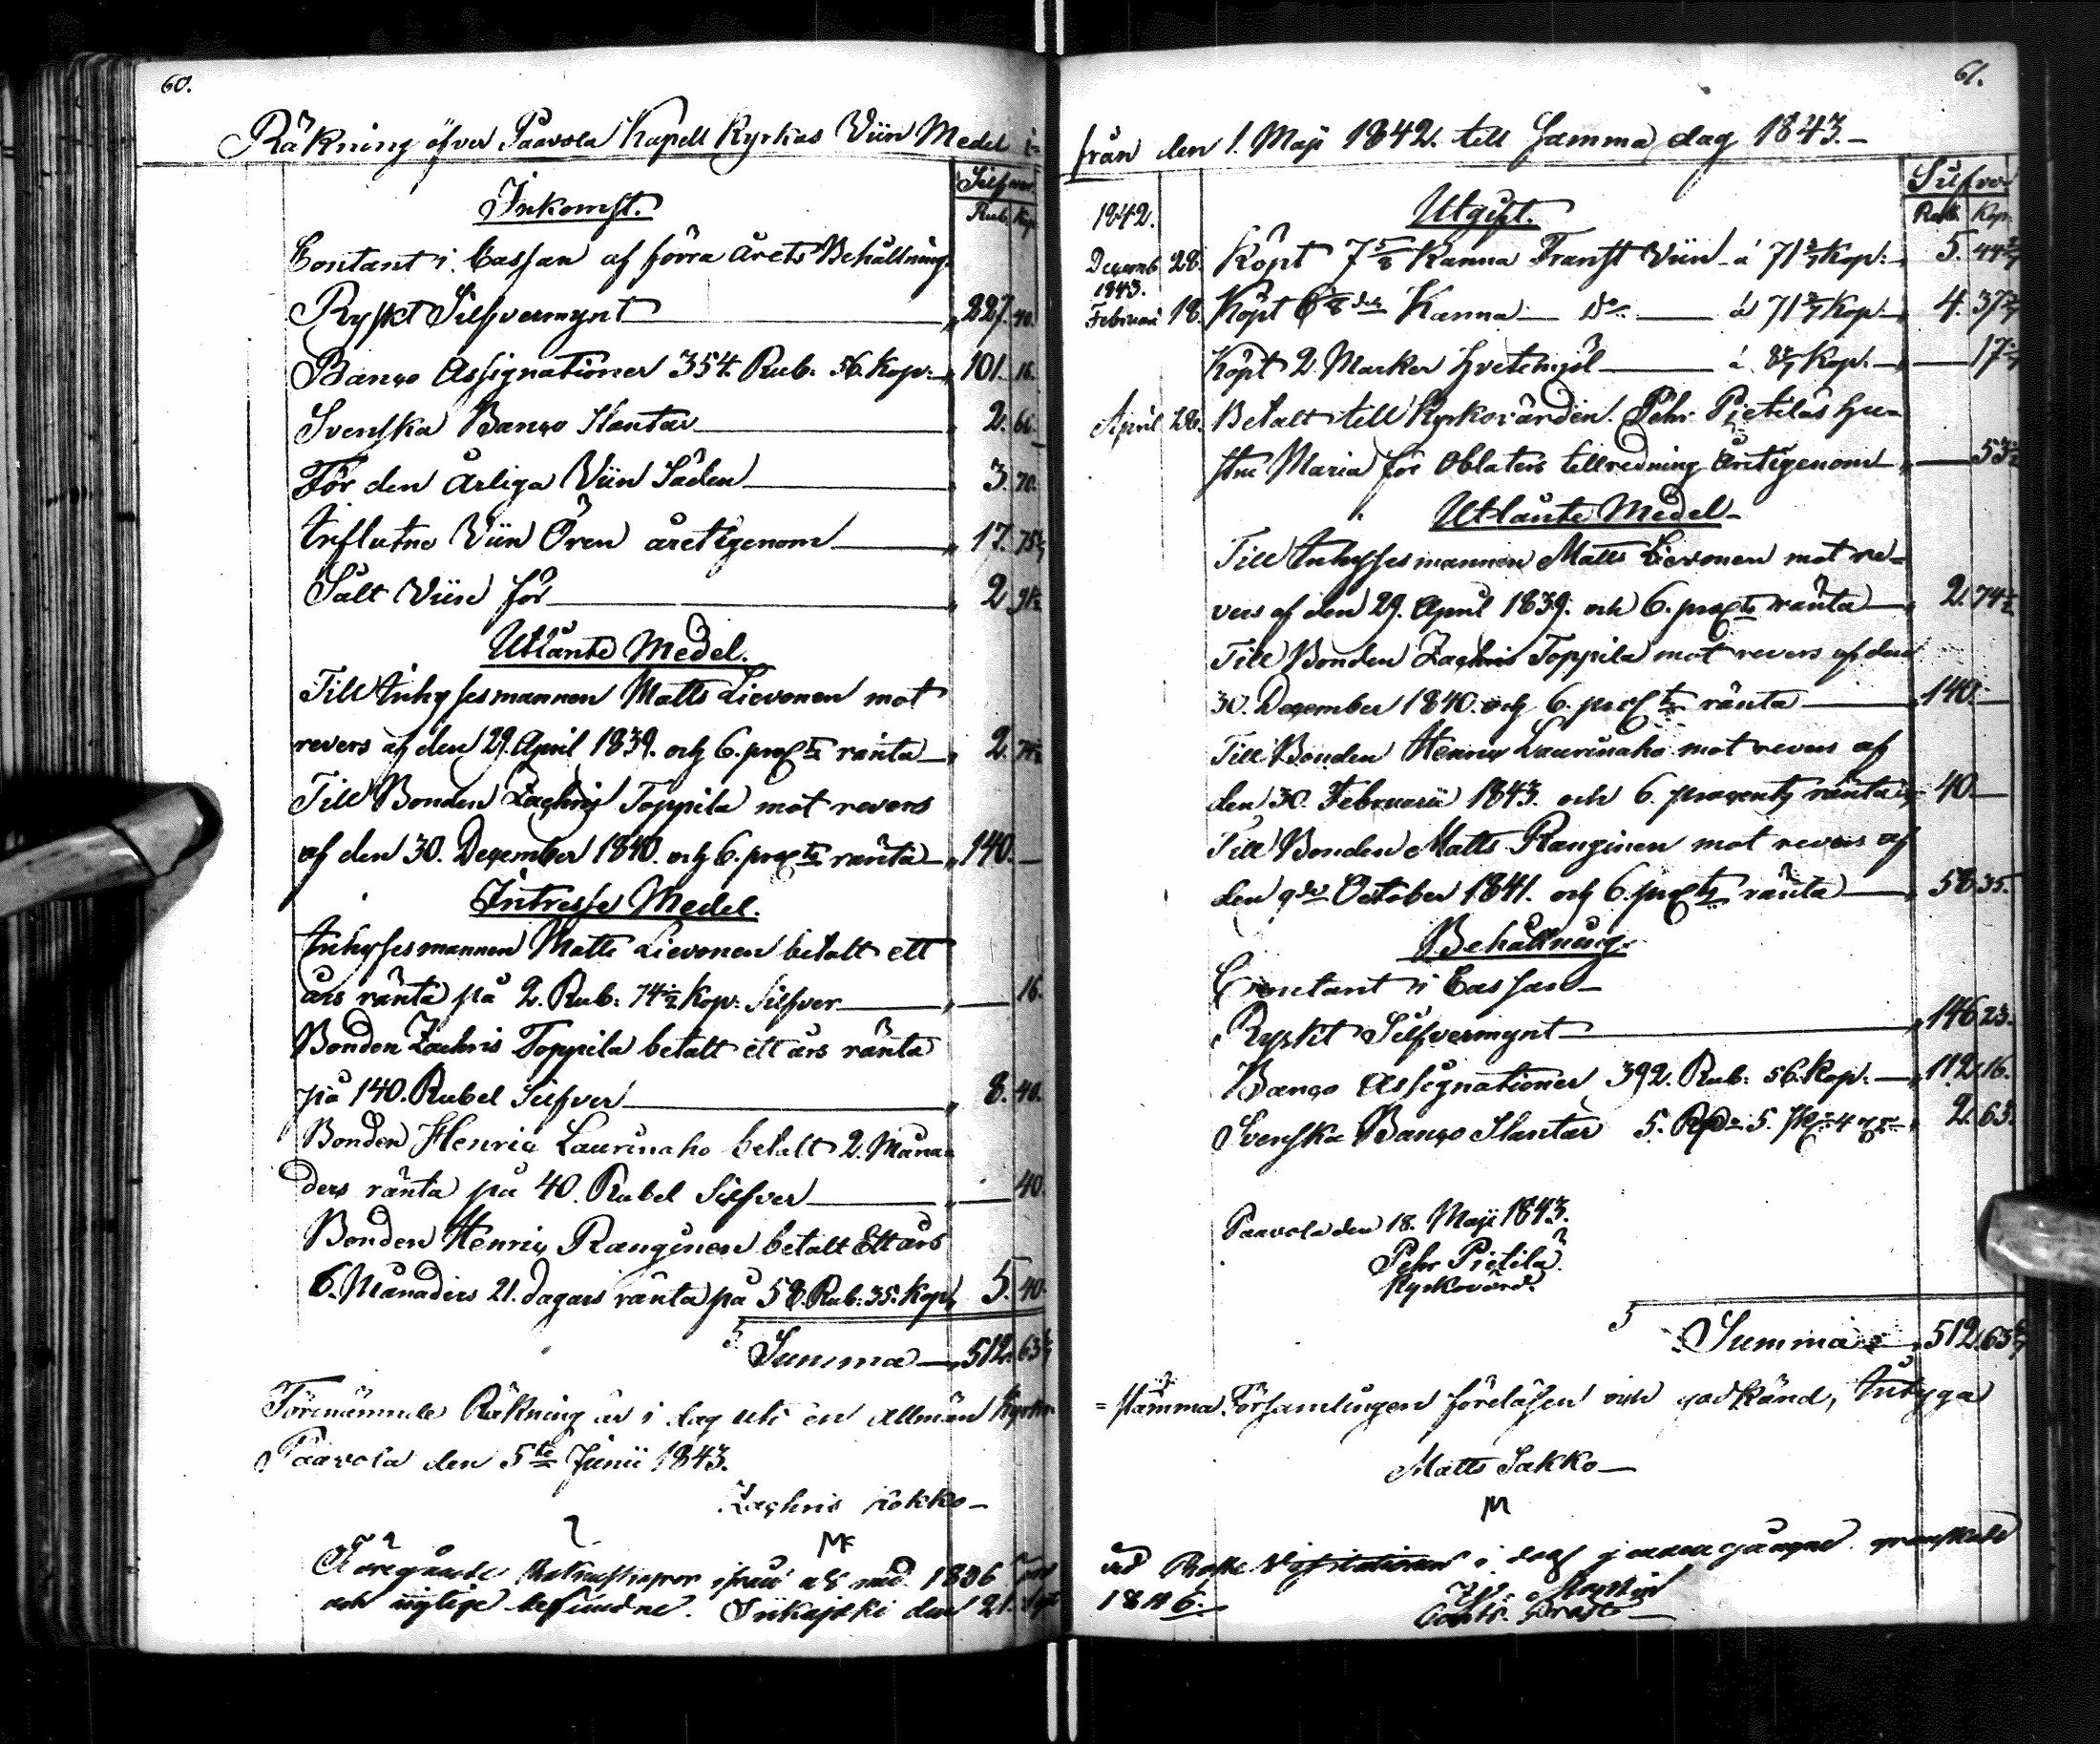 60.
Räkning öfver Paavola Kapell Kyrkas Viin Medel i=
Silfver
Inkomst.
Rub. Kop.
Contant i Cassan af förra årets Behållning
Ryskt Silfvermynt 227. 40.
Banco Assignationer 354. Rub. 56. Kop. 101. 16.
Svenska Banco Slantar 2. 66.
För den årliga Viin Säden 3. 70.
Influtne Viin Ören åretigenom 17. 75
Sålt Viin för 2
Utlånte Medel.
Till Inhysesmannen Matts Lievonen mot
revers af den 29. April 1839. och 6. proc:ts ränta 2. 74½
Till Bonden Zachris Toppila mot revers
af den 30. December 1840. och 6. proc:ts ränta 140. —
Intresse Medel.
Inhysesmannen Matts Lievonen betalt ett
års ränta på 2. Rub: 74½ Kop: Silfver 16.
Bonden Zachris Toppila betalt ett års ränta
på 140. Rubel Silfver 8. 40.
Bonden Henric Laurinaho betalt 2. Måna=
ders ränta på 40. Rubel Silfver 40.
Bonden Henric Ranginen betalt Ett års
6. Månaders 21. dagars ränta på 58. Rub: 35. Kop. 5. 40.
Summa 512. 63
Förenämnde Räkning är i dag uti en allmän Kyrko
Paavola den 5te Junii 1843.
Zachris Kokko
Föregående ifrån och med 1836
och riktige befundne. Siikajoki den 21. Sept
61.
från den 1. Maji 1842. till samma dag 1843.
Silfver
1842. Utgift. Rub. Kop.
Decemb 28. Köpt 7 5/8 Kanna Franst Viin á 71 3/7 Kop: 5. 44
1843.
Februari 18. Köpt 6 1/8 dels Kanna Do á 71 3/7 Kop. 4. 37
Köpt 2. Marker Hvetemjöl á Kop. 17
April 28. Betalt till Kyrkovärden Pehr Pietiläs Hu=
stru Maria för Oblaters tillredning åretigenom 53
Utlånte Medel
Till Inhysesmannen Matts Lievonen mot re=
vers af den 29. April 1839. och 6. proc:ts ränta 2. 74½
Till Bonden Zachris Toppila mot revers af den
30. December 1840. och 6. proc:ts ränta 140. —
Till Bonden Henric Laurinaho mot revers af
den 30. Februarii 1843. och 6. procents ränta 40. —
Till Bonden Matts Ranginen mot revers af
den 9de October 1841. och 6. proc:ts ränta 58. 35.
Behållning.
Contant i Cassan
Ryskt Silfvermynt 146. 23.
Banco Assignationer 392. Rub: 56. Kop. 112. 16.
Svenska Banco Slantar 5. 5. 4 2. 63.
Paavola den 18. Maji 1843.
Pehr Pietilä
Kyrkovärd.
Summa 512. 63
=stämma Församlingen föreläsen och godkänd, Intyga
Matts Sakko
vid Visitationen i dag genomgångne granskade
1846.
Contr. Prost